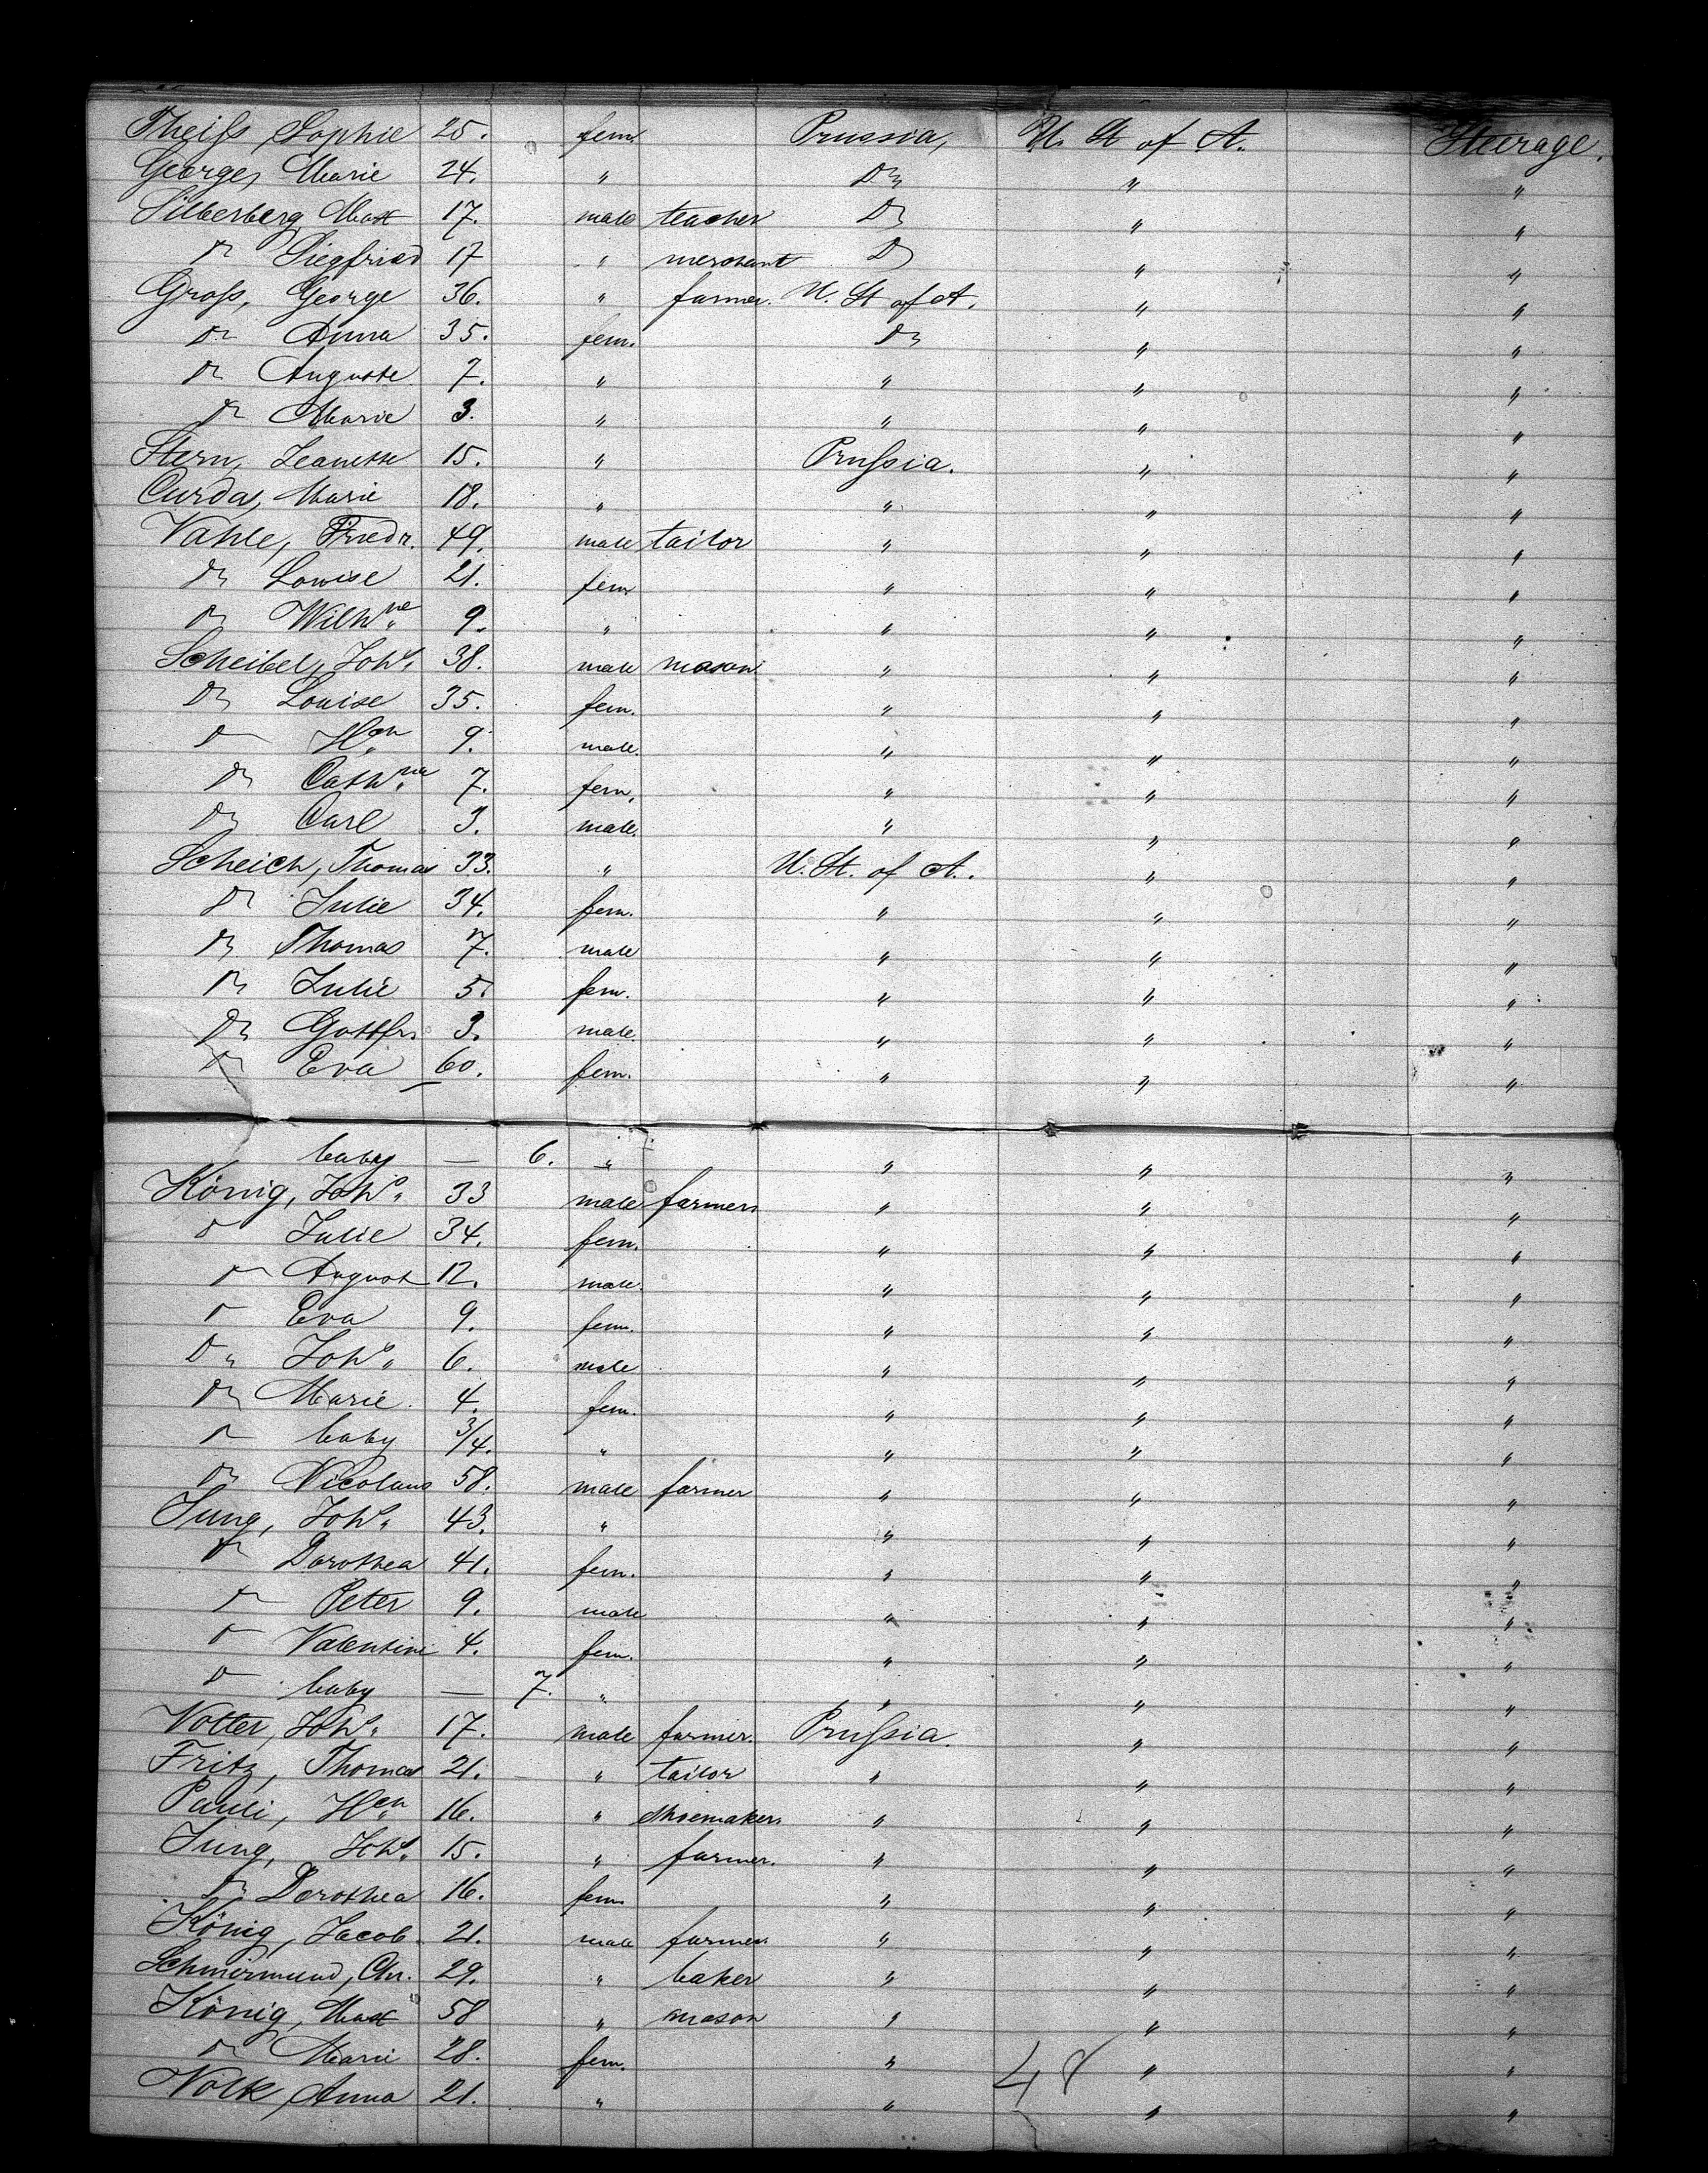 Theiſs, Sophie 25. fem. Prussia, U. St of A. Steerage.
George, Marie 24. " Do " "
Silberberg Max 17. male teacher Do " "
Do Siegfried 17 " merchant Do " "
Groſs, George 36. " farmer. U. St of A. " "
Do Anna 35. fem. Do " "
Do Auguste 7. " " " "
Do Marie 3. " " " "
Stern, Jeanette 15. " Pruſsia. " "
Curdas, Marie 18. " " " "
Vahle, Friedr. 49. male tailor " " "
Do Louise 21. fem " " "
Do Wilhne 9. " " " "
Scheibel, Johs. 38. male mason " " "
Do Louise 35. fem. " " "
Do Hch 9. male. " " "
Do Cathna 7. fem. " " "
Do Carl 3. male. " " "
Scheich, Thomas 33. " U. St. of A. " "
Do Julie 34. fem. " " "
Do Thomas 7. male " " "
Do Julie 5. fem. " " "
Do Gottfr. 3. male. " " "
Do Eva 60. fem. " " "
baby — 6. " " " "
König, Johs. 33 male farmer. " " "
Do Julie 34. fem. " " "
Do August 12. male. " " "
Do Eva 9. fem. " " "
Do Johs. 6. male " " "
Do Marie. 4. fem. " " "
Do baby 3/4. " " " "
Do Nicolaus 58. male farmer " " "
Jung, Johs. 43. " " " "
Do Dorothea 41. fem. " " "
Do Peter 9. male " " "
Do Valentine 4. fem. " " "
Do baby — 7. " " " "
Votter, Johs. 17. male farmer. Pruſsia. " "
Fritz, Thomas 21. " tailor " " "
Pauli, Hch 16. " shoemaker. " " "
Jung, Johs. 15. " farmer. " " "
Do Dorothea 16. fem. " " "
König, Jacob 21. male farmer. " " "
Schmermund, Chr. 29. " baker " " "
König, Max 58 " mason " " "
Do Marie 28. fem. " " "
Nolk, Anna 21. " " " "
48